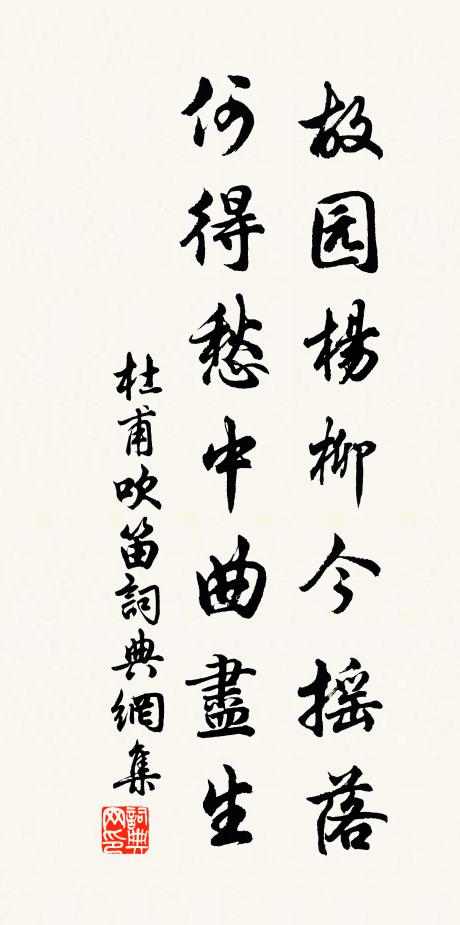 故园楊柳今摇落
何得愁中曲盡生
杜甫吹笛詞典網集
詞典网印